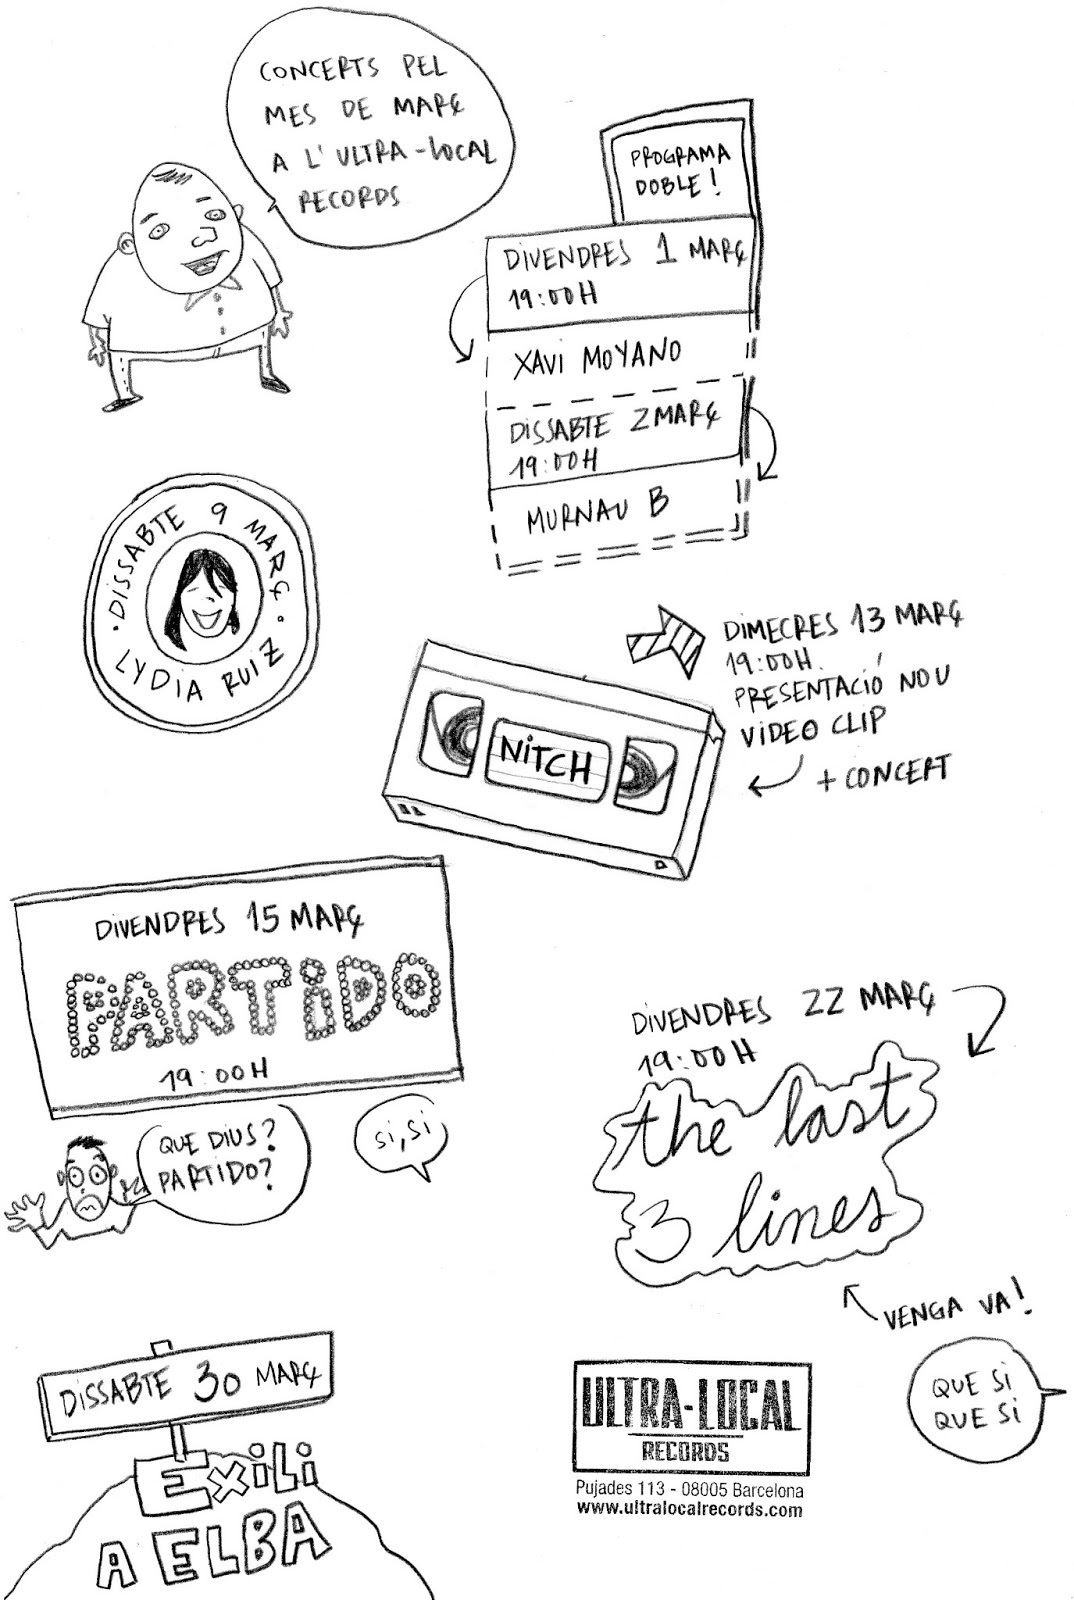 CONCERTS PEL
MES DE MARÇ
A L'ULTRA-LOCAL
RECORDS
PROGRAMA
DOBLE!
DIVENDRES 1 MARÇ
19:00H
XAVI MOYANO
DISSABTE 2 MARÇ
19:00H
MURNAU B
· DISSABTE 9 MARÇ ·
LYDIA RUIZ
DIMECRES 13 MARÇ
19:00H.
PRESENTACIÓ NOU
VIDEO CLIP
+ CONCERT
NITCH
DIVENDRES 15 MARÇ
PARTIDO
19:00H
QUE DIUS?
PARTIDO?
SI, SI
DIVENDRES 22 MARÇ
19:00H
the last
3 lines
VENGA VA!
QUE SI
QUE SI
DISSABTE 30 MARÇ
EXILI
A ELBA
ULTRA-LOCAL
RECORDS
Pujades 113 - 08005 Barcelona
www.ultralocalrecords.com